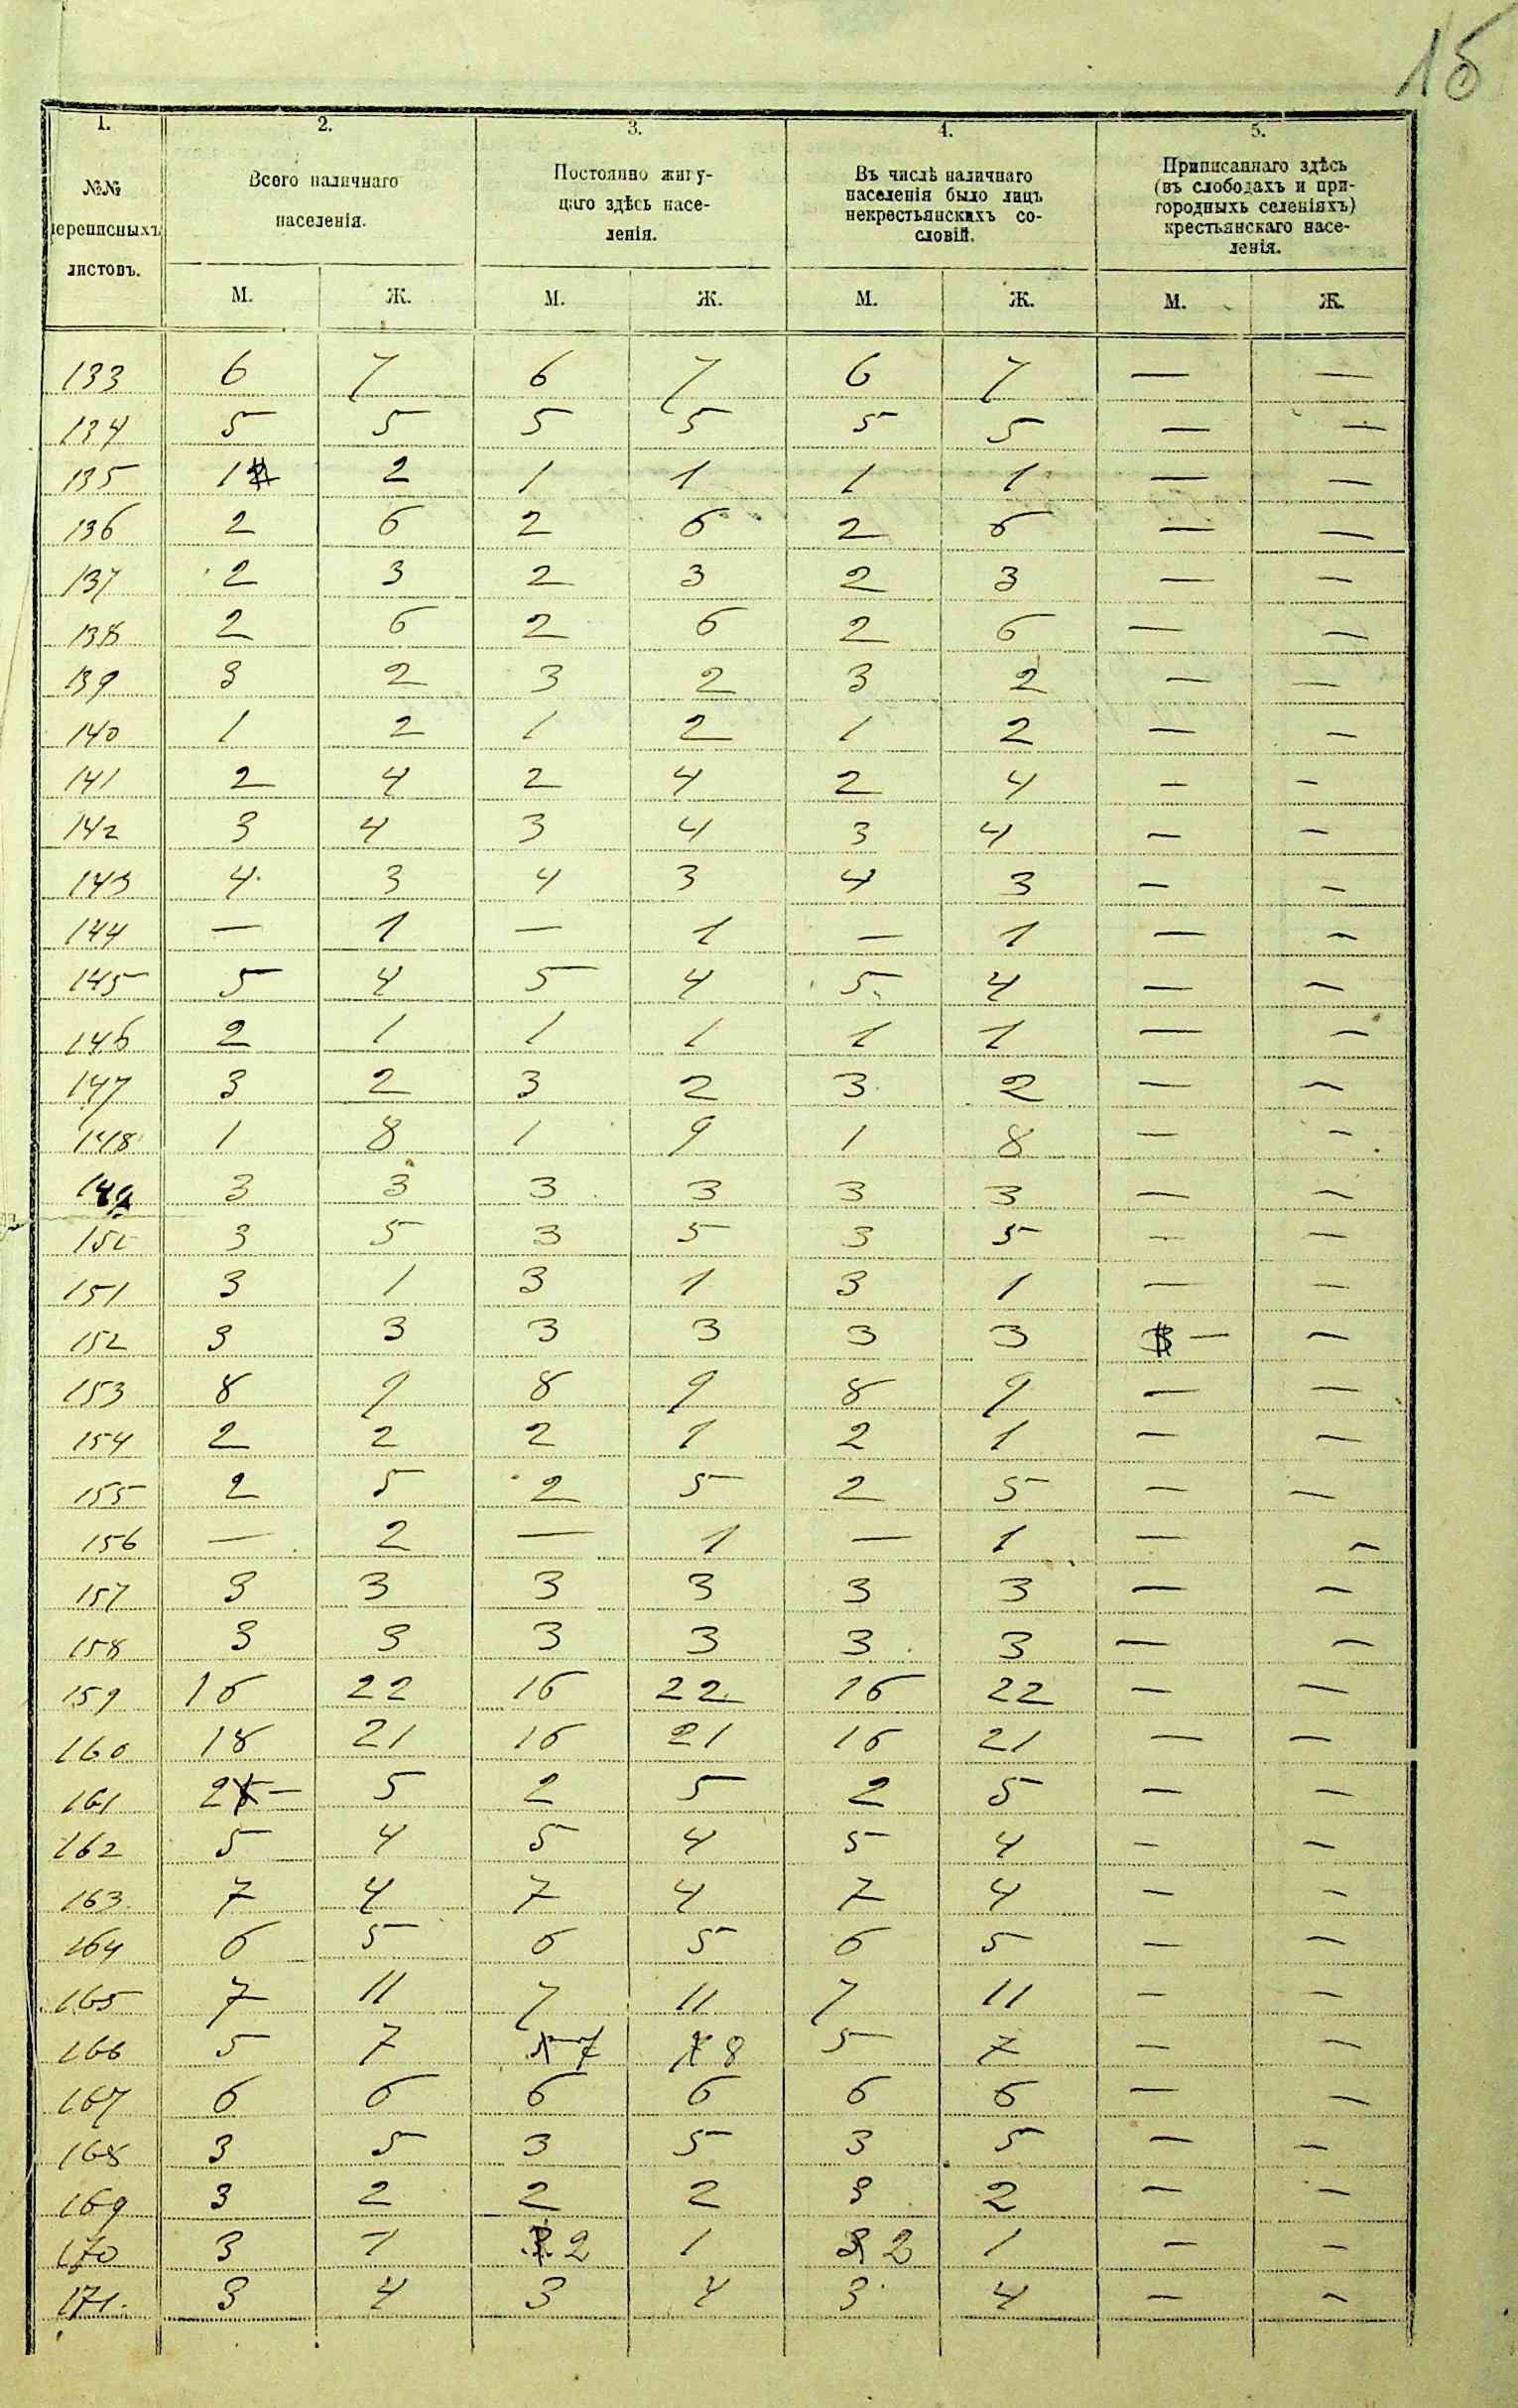 15
1. 2. 3. 4. 5.
№№ переписныхъ листовъ.
Всего наличнаго населенія.
Постоянно живу-
щаго здѣсь насе-
ленія.
Въ числѣ наличнаго
населенія было лицъ
некрестьянскихъ со-
словій.
Приписаннаго здѣсь
(въ слободахъ и при-
городныхъ селеніяхъ)
крестьянскаго насе-
ленія.
М. Ж. М. Ж. М. Ж. М. Ж.
133 6 7 6 7 6 7 — —
134 5 5 5 5 5 5 — —
135 1 2 1 1 1 1 — —
136 2 6 2 6 2 6 — —
137 2 3 2 3 2 3 — —
138 2 6 2 6 2 6 — —
139 3 2 3 2 3 2 — —
140 1 2 1 2 1 2 — —
141 2 4 2 4 2 4 — —
142 3 4 3 4 3 4 — —
143 4 3 4 3 4 3 — —
144 — 1 — 1 — 1 — —
145 5 4 5 4 5 4 — —
146 2 1 1 1 1 1 — —
147 3 2 3 2 3 2 — —
148 1 8 1 9 1 8 — —
149 3 3 3 3 3 3 — —
150 3 5 3 5 3 5 — —
151 3 1 3 1 3 1 — —
152 3 3 3 3 3 3 — —
153 8 9 8 9 8 9 — —
154 2 2 2 1 2 1 — —
155 2 5 2 5 2 5 — —
156 — 2 — 1 — 1 — —
157 3 3 3 3 3 3 — —
158 3 3 3 3 3 3 — —
159 16 22 16 22 16 22 — —
160 18 21 16 21 16 21 — —
161 2 5 2 5 2 5 — —
162 5 4 5 4 5 4 — —
163 7 4 7 4 7 4 — —
164 6 5 6 5 6 5 — —
165 7 11 7 11 7 11 — —
166 5 7 7 8 5 7 — —
167 6 6 6 6 6 6 — —
168 3 5 3 5 3 5 — —
169 3 2 2 2 3 2 — —
170 3 1 2 1 2 1 — —
171. 3 4 3 4 3 4 — —